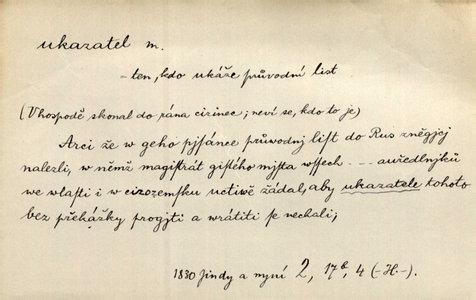 ukazatel m.
- ten, kdo ukáže průvodní list
(V hospodě skonal do rána cizinec; neví se, kdo to je)
Arci že w geho pjsánce průwodnj list do Rus zněgjcj
nalezli, w němž magistrát gistého mjsta wssech --- auředlnjků
we wlasti i w cizozemsku uctiwě žádal, aby ukazatele tohoto
bez překážky progjti a wrátiti se nechali;
1830 Jindy a nyní 2, 17b, 4 (-H-).